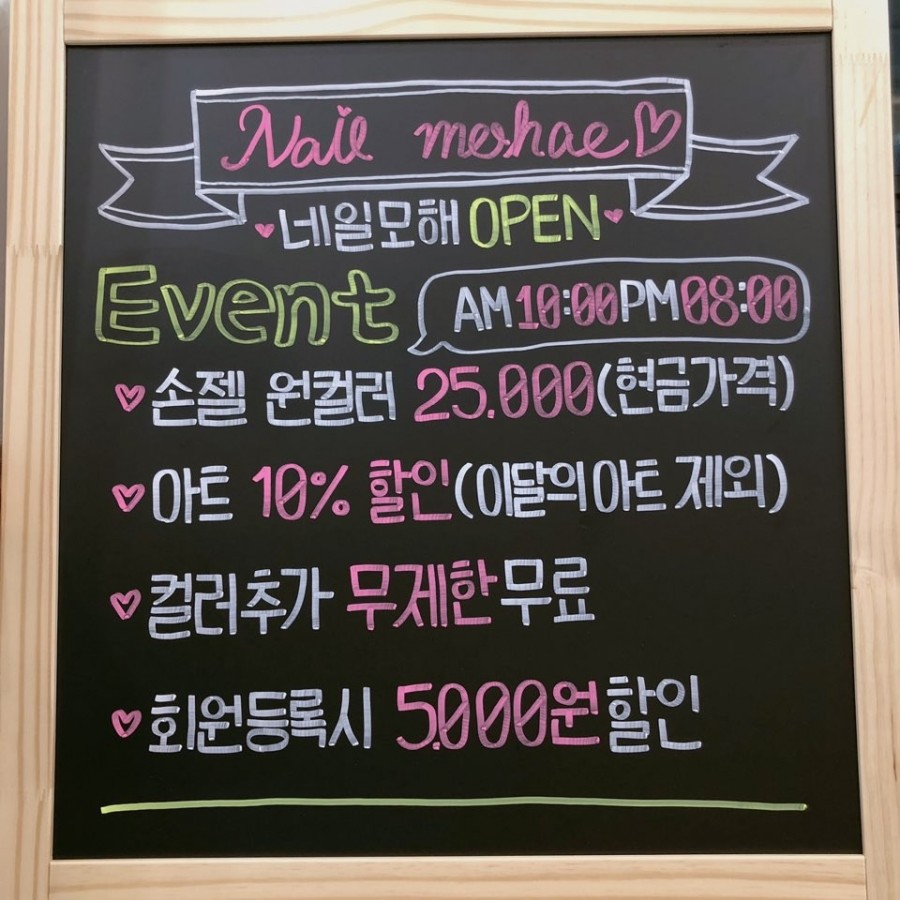 Nail mohae
네일모해 OPEN
Event AM 10:00 PM 08:00
손젤 원컬러 25.000(현금가격)
아트 10% 할인(이달의 아트 제외)
컬러추가 무제한 무료
회원등록시 5.000원 할인